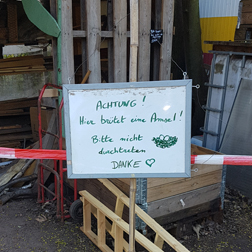 ACHTUNG!
Hier brütet eine Amsel!
Bitte nicht
durchtreten
DANKE